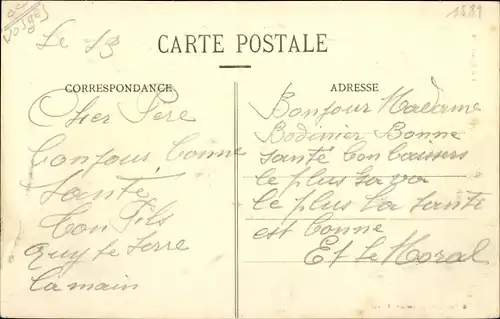 Vosges
1589
Le 13
CARTE POSTALE
CORRESPONDANCE
Cher Pere
bonjour bonne
Santé
ton Fils
quy te serre
la main
ADRESSE
Bonjour Madame
Bodinier Bonne
santé bon baisers
le plus sa va
le plus la sante
est bonne
Et le Moral